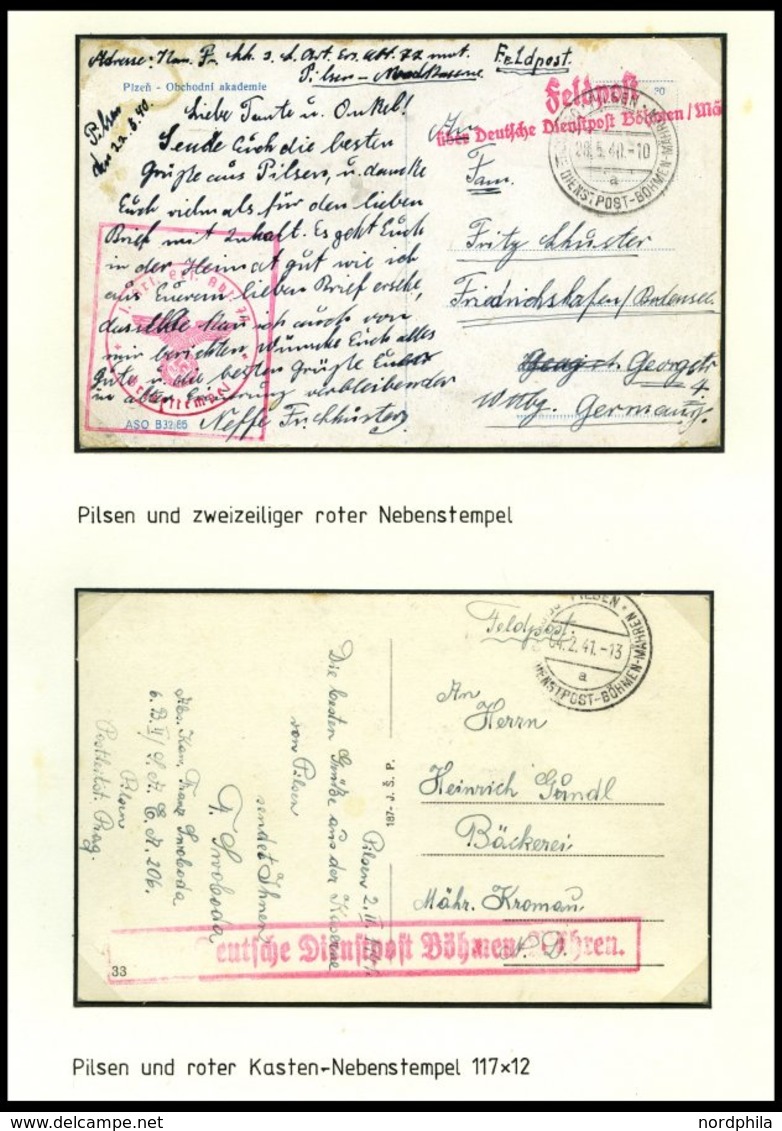 Adresse: Kan. F. Schh. 3. L. Art. Ers. Abt. 72 mot.
Pilsen - Nordkaserne
Feldpost.
Plzeň - Obchodní akademie
Pilsen
den 22.5.40.
Liebe Tante u. Onkel!
Sende Euch die besten
Grüße aus Pilsen, u. danke
Euch vielmals für den lieben
Brief mit Inhalt. Es geht Euch
in der Heimat gut wie ich
aus Eurem lieben Brief ersehe,
dasselbe kan ich auch von
mir berichten. Wünsche Euch alles
Gute u. die besten Grüße Euer
in alter Erinnerung verbleibender
Neffe
ASO B32/65
Feldpost
über Deutsche Dienstpost Böhmen/Mä
PILSEN
28.5.40.-10
a
DIENSTPOST-BÖHMEN-MÄHREN
An
Fam.
Fritz Schuster
Friedrichshafen/Bodensee
Georgstr
4
Wttbg. Germany.
Pilsen und zweizeiliger roter Nebenstempel
Feldpost.
PILSEN
04.2.41.-13
a
DIENSTPOST-BÖHMEN-MÄHREN
An
Herrn
Heinrich Gundl
Bäckerei
Mähr. Kromau
N. D.
187- J. Š. P.
Pilsen 2. II.
Die besten Grüße aus der Kaserne
von Pilsen
sendet Ihnen
F. Swoboda
Abs. Kan. Franz Swoboda
6. B. II/S. A. E. A. 206.
Pilsen
Postleitst. Prag.
Deutsche Dienstpost Böhmen/Mähren.
33
Pilsen und roter Kasten-Nebenstempel 117x12
nordphila